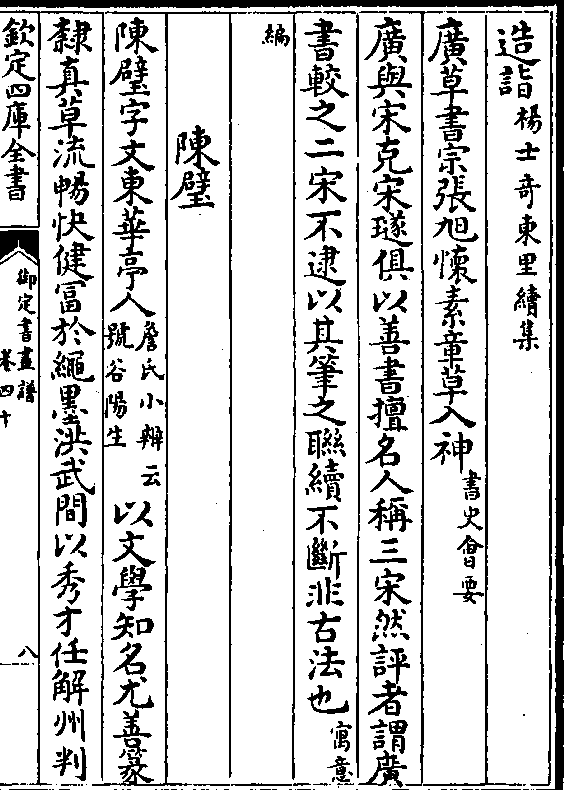 造詣楊士奇東里續集
廣草書宗張旭懷素章草入神書史會要
廣與宋克宋璲俱以善書擅名人稱三宋然評者謂廣
書較之二宋不逮以其筆之聯續不斷非古法也寓意
編
陳璧
陳璧字文東華亭人詹氏小辨云號谷陽生以文學知名尤善篆
隸真草流暢快健富於繩墨洪武間以秀才任解州判
欽定四庫全書
御定書畫譜
卷四十
八